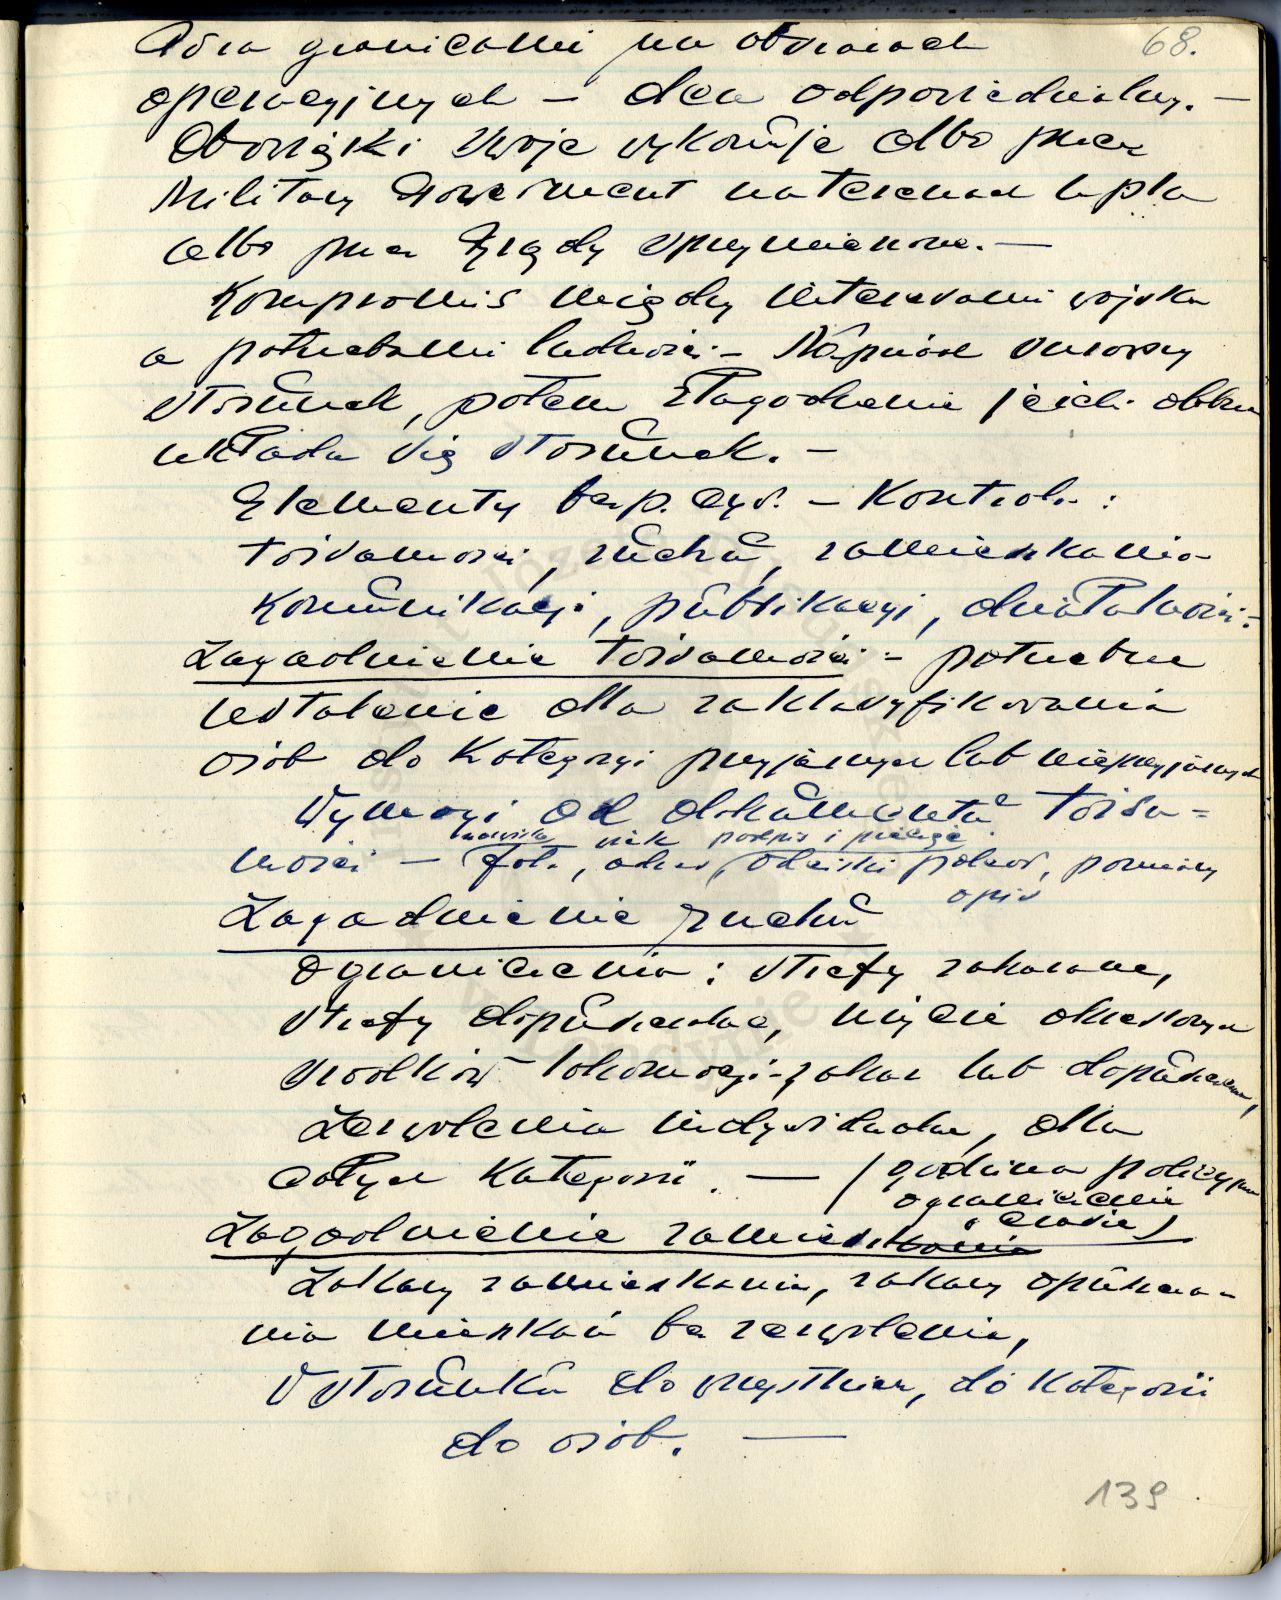 68.
Poza granicami na obszarach
operacyjnych – dca odpowiedzialny. –
Obowiązki swoje wykonuje albo przez
Military Government na terenach npla
albo przez Rządy sprzymierzone. –
Kompromis między interesami wojska
a potrzebami ludności – Najpierw surowszy
stosunek, potem złagodzenie / jeśli dobrze
układa się stosunek. –
Elementy bezp. cyw. – Kontrola :
tożsamości, ruchu, zamieszkania
Komunikacji, publikacji, działalności.
Zagadnienie tożsamości – potrzebne
ustalenie dla zaklasyfikowania
osób do Kategorji przyjaznych lub nieprzyjaznych
Wymogi od dokumentu tożsa=
nazwisko wiek podpis i pieczęć
mości – fot., adres, odciski palców, pomiary
opis
Zagadnienie ruchu
ograniczenia : strefy zakazane,
strefy dopuszczalne, użycie określonych
środków lokomocji – zakaz lub dopuszczenie,
Zezwolenia indywidualne, dla
całych Kategorii. — / godzina policyjna
ograniczenie
w czasie /
Zagadnienie zamieszkania
Zakazy zamieszkania, zakazy opuszcza-
nia mieszkań bez zezwolenia,
W stosunku do wszystkich, do Kategorii
do osób. —
139
Instytut Józefa Piłsudskiego
w Londynie